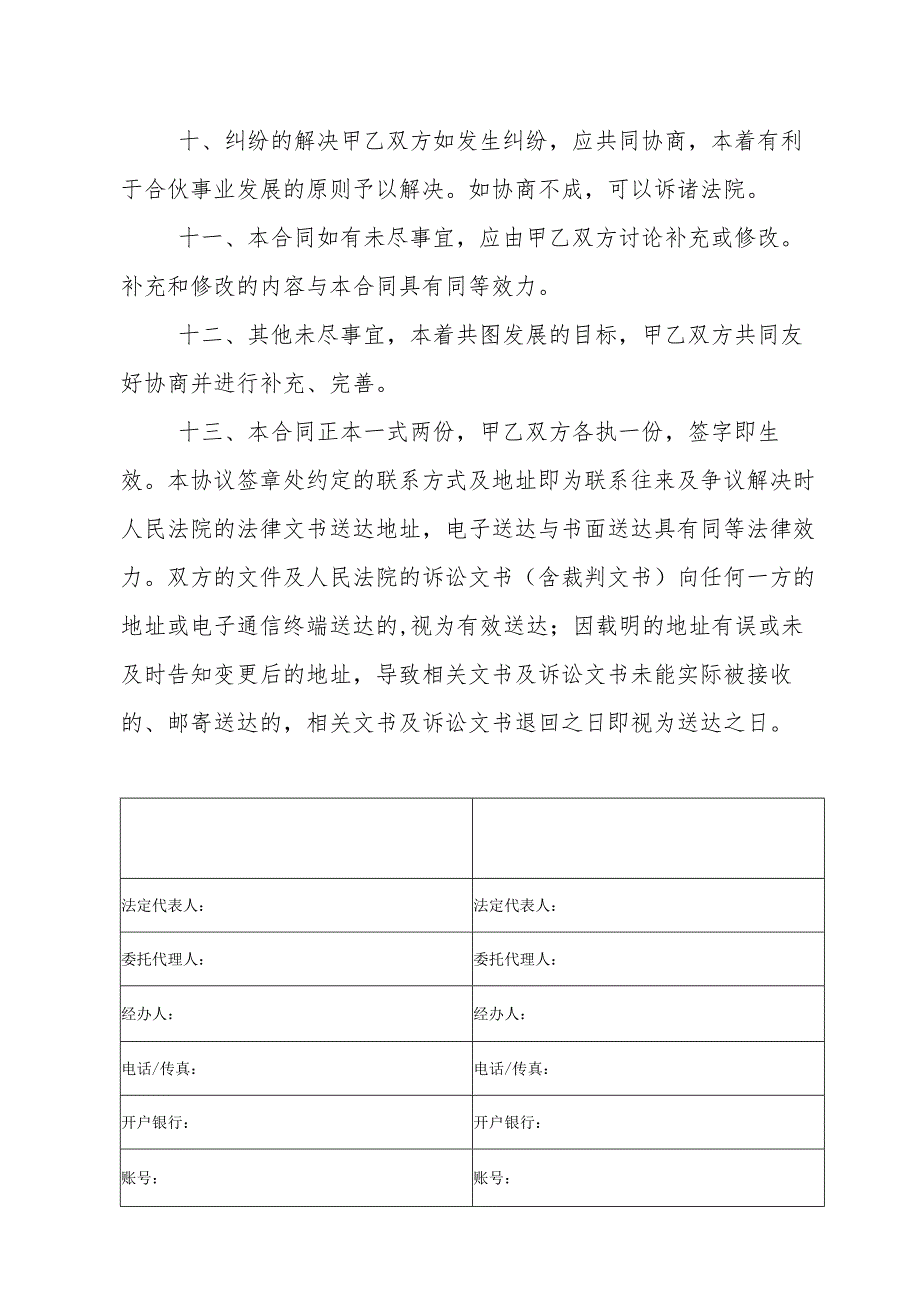 十、纠纷的解决甲乙双方如发生纠纷，应共同协商，本着有利
于合伙事业发展的原则予以解决。如协商不成，可以诉诸法院。
十一、本合同如有未尽事宜，应由甲乙双方讨论补充或修改。
补充和修改的内容与本合同具有同等效力。
十二、其他未尽事宜，本着共图发展的目标，甲乙双方共同友
好协商并进行补充、完善。
十三、本合同正本一式两份，甲乙双方各执一份，签字即生
效。本协议签章处约定的联系方式及地址即为联系往来及争议解决时
人民法院的法律文书送达地址，电子送达与书面送达具有同等法律效
力。双方的文件及人民法院的诉讼文书（含裁判文书）向任何一方的
地址或电子通信终端送达的,视为有效送达；因载明的地址有误或未
及时告知变更后的地址，导致相关文书及诉讼文书未能实际被接收
的、邮寄送达的，相关文书及诉讼文书退回之日即视为送达之日。
法定代表人： 法定代表人：
委托代理人： 委托代理人：
经办人： 经办人：
电话/传真： 电话/传真：
开户银行： 开户银行：
账号： 账号：